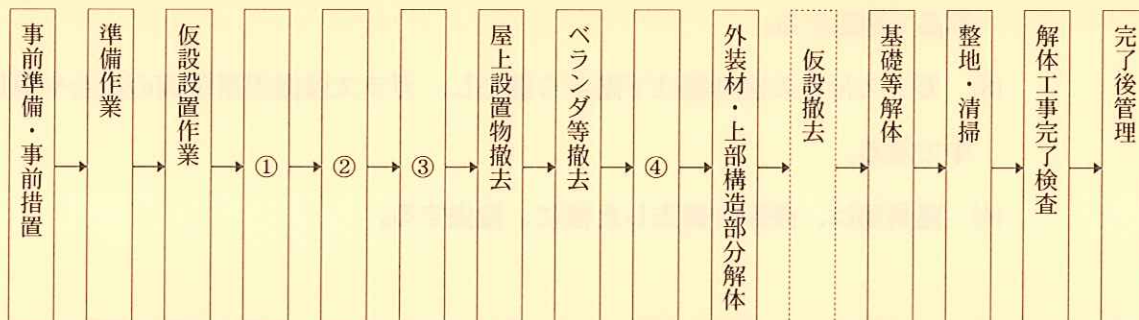 事前準備・事前措置
準備作業
仮設設置作業
①
②
③
屋上設置物撤去
ベランダ等撤去
④
外装材・上部構造部分解体
仮設撤去
基礎等解体
整地・清掃
解体工事完了検査
完了後管理